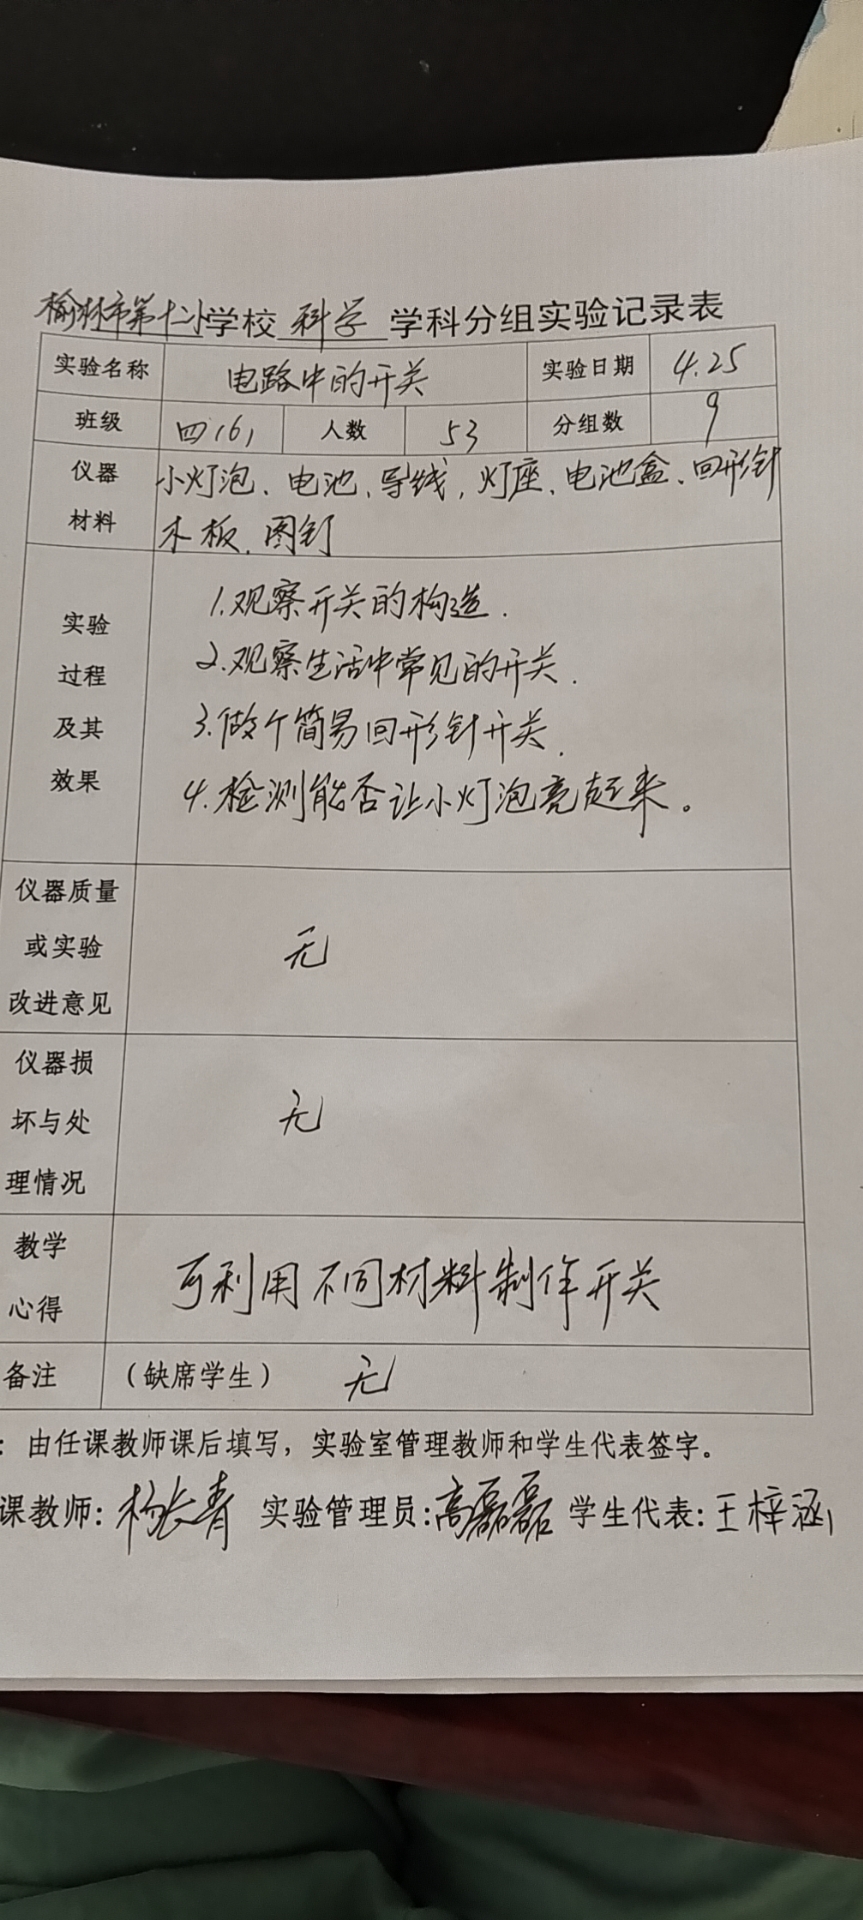 榆林市第十二小学校 科学 学科分组实验记录表
实验名称 电路中的开关 实验日期 4.25
班级 四(6) 人数 53 分组数 9
仪器材料 小灯泡、电池、导线、灯座、电池盒、回形针
木板、图钉
实验过程及其效果
1.观察开关的构造.
2.观察生活中常见的开关.
3.做个简易回形针开关.
4.检测能否让小灯泡亮起来。
仪器质量或实验改进意见 无
仪器损坏与处理情况 无
教学心得 可利用不同材料制作开关
备注 (缺席学生) 无
:由任课教师课后填写，实验室管理教师和学生代表签字。
课教师:杨长青 实验管理员:高磊磊 学生代表:王梓涵